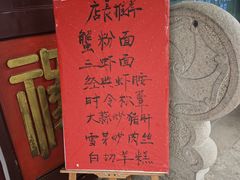 店长推荐
蟹粉面
三虾面
经典虾腰
时令松蕈
大蒜炒猪肝
雪芽炒肉丝
白切羊糕